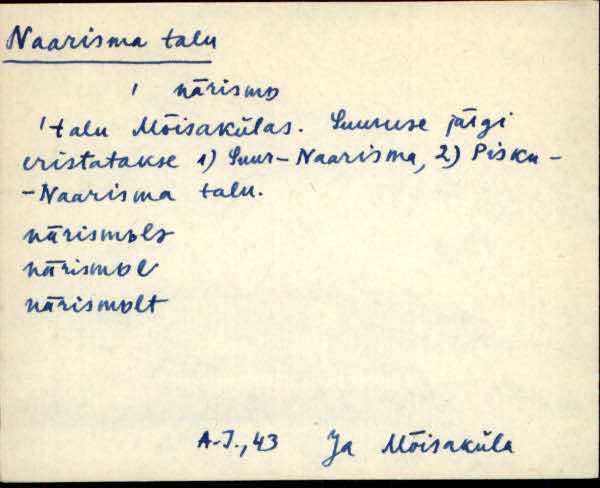 Naarisma talu
' närismɒ
' talu Mõisakülas. Suuruse järgi
eristatakse 1) Suur-Naarisma, 2) Pisku-
-Naarisma talu.
närismɒlɜ
närismɒl
närismɒlt
A.J.,43 Ja Mõisaküla